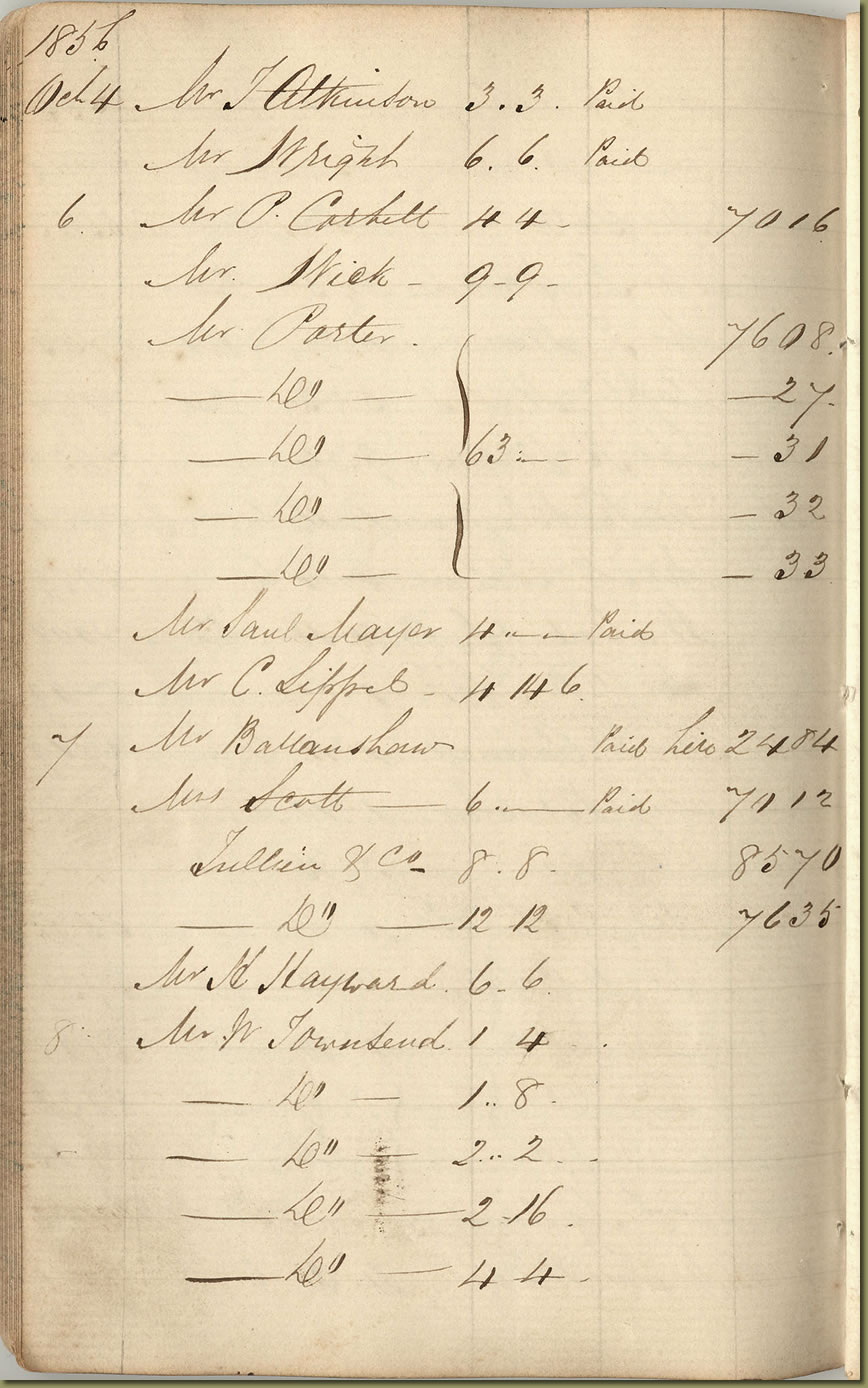 1856
Oct 4 Mr J Atkinson 3. 3. Paid
Mr Wright 6. 6. Paid
6. Mr P. Corbett 4 4 - 7016
Mr. Wick - 9-9-
Mr Porter. 7608.
— Do — — 27.
— Do — 63 :— — 31
— Do — — 32
— Do — — 33
Mr Paul Mayer 4 . — Paid
Mr C. Lippel - 4 14 6.
7 Mr Battanshaw Paid hire 2484
Mrs Scott — 6 . — Paid 7012
Jullien & Co 8. 8. 8570
— Do — 12 12 7635
Mr H Hayward. 6. 6.
8. Mr W Townsend. 1 4 .
— Do — 1.. 8 .
— Do — 2.. 2 . .
— Do — 2 -16 .
— Do — 4 4 .